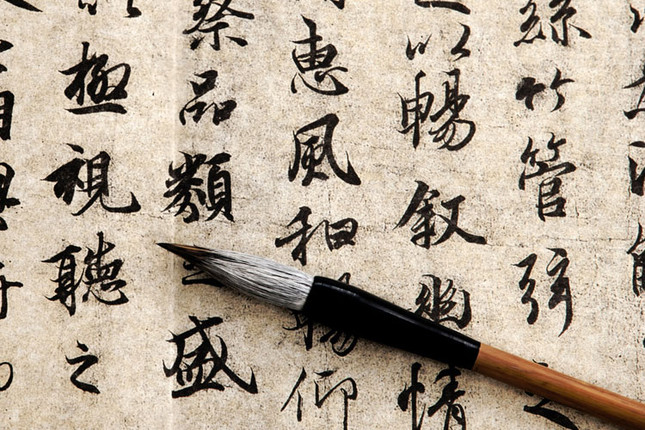 絲竹管弦之
以暢叙幽情
惠風和暢仰
察品類之盛
以極視聽之